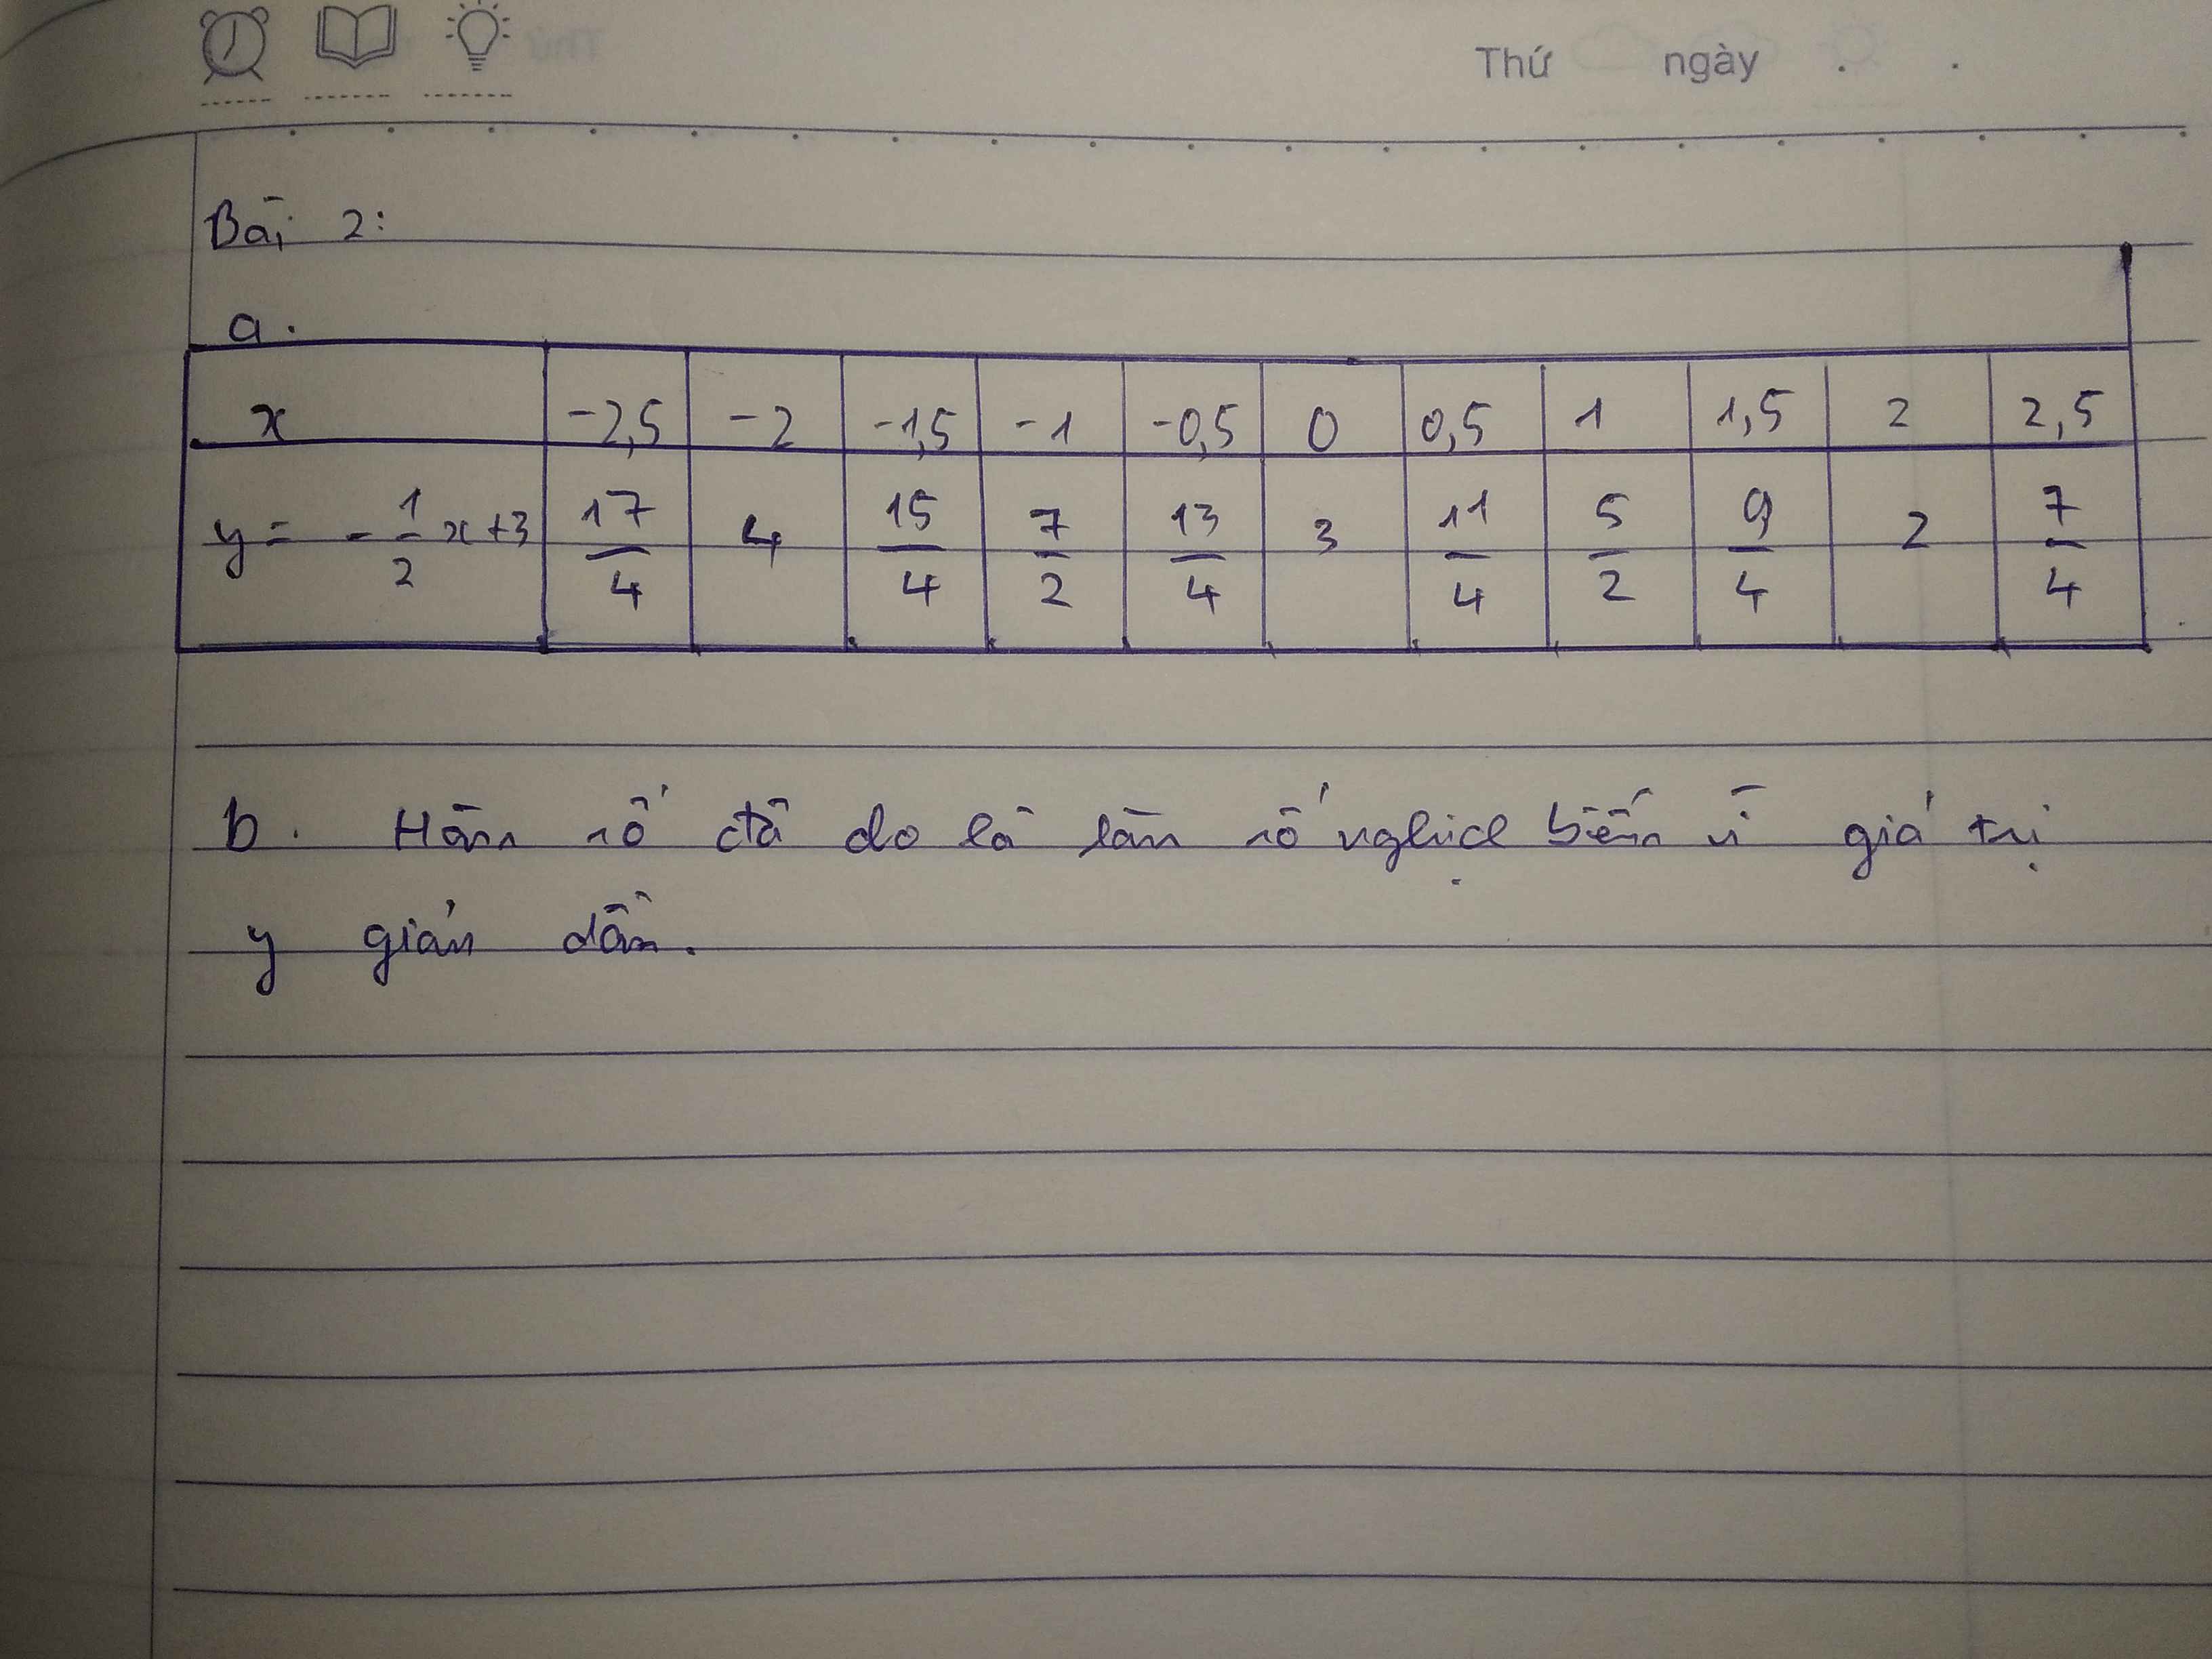 Thứ ngày . .
Bài 2:
a.
x -2,5 -2 -1,5 -1 -0,5 0 0,5 1 1,5 2 2,5
y = -1/2 x+3 17/4 4 15/4 7/2 13/4 3 11/4 5/2 9/4 2 7/4
b. Hàm số đã cho là hàm số nghịch biến vì giá trị
y giảm dần.